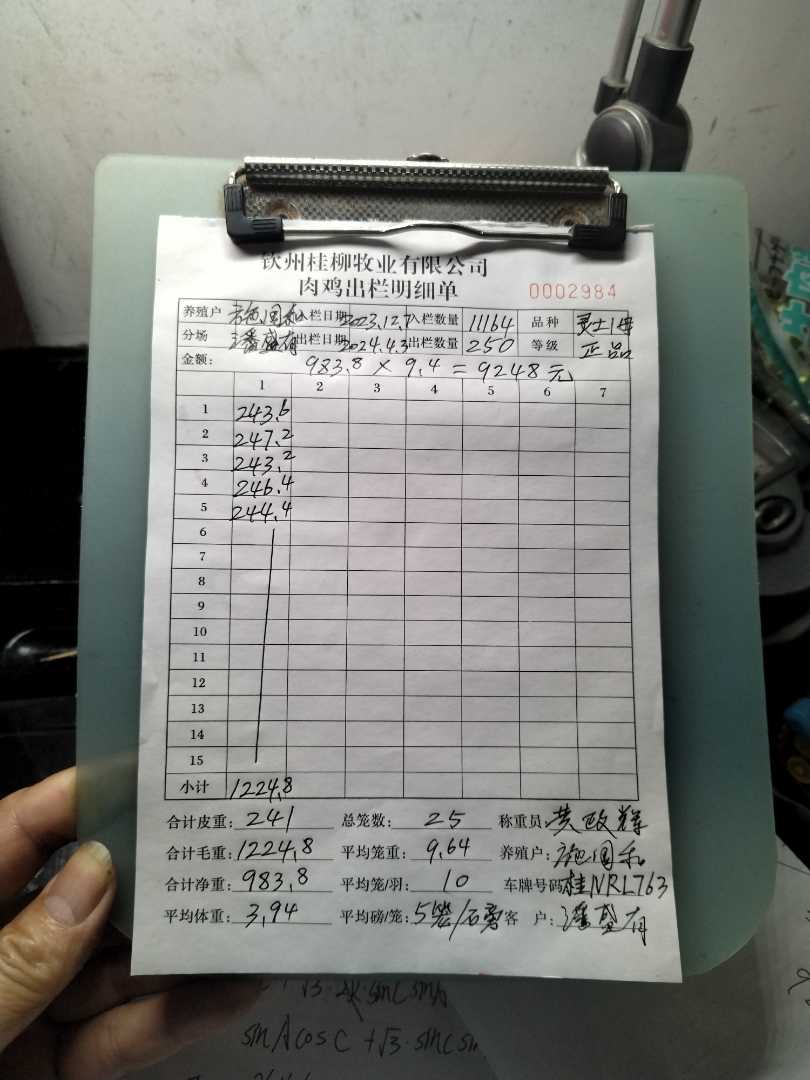 钦州桂柳牧业有限公司
肉鸡出栏明细单 0002984
养殖户 施国和 入栏日期 2023.12.7 入栏数量 11164 品种 灵士1母
分场 潘盛有 出栏日期 2024.4.3 出栏数量 250 等级 正品
金额: 983.8 × 9.4 = 9248元
1 2 3 4 5 6 7
1 243.6
2 247.2
3 243.2
4 246.4
5 244.4
6
7
8
9
10
11
12
13
14
15
小计 1224.8
合计皮重: 241 总笼数: 25 称重员: 黄政辉
合计毛重: 1224.8 平均笼重: 9.64 养殖户: 施国和
合计净重: 983.8 平均笼/羽: 10 车牌号码 桂NRL763
平均体重: 3.94 平均磅/笼: 5 客 户: 潘盛有
√3·2k·sinC sinA
sinAcosC +√3·sinC sin